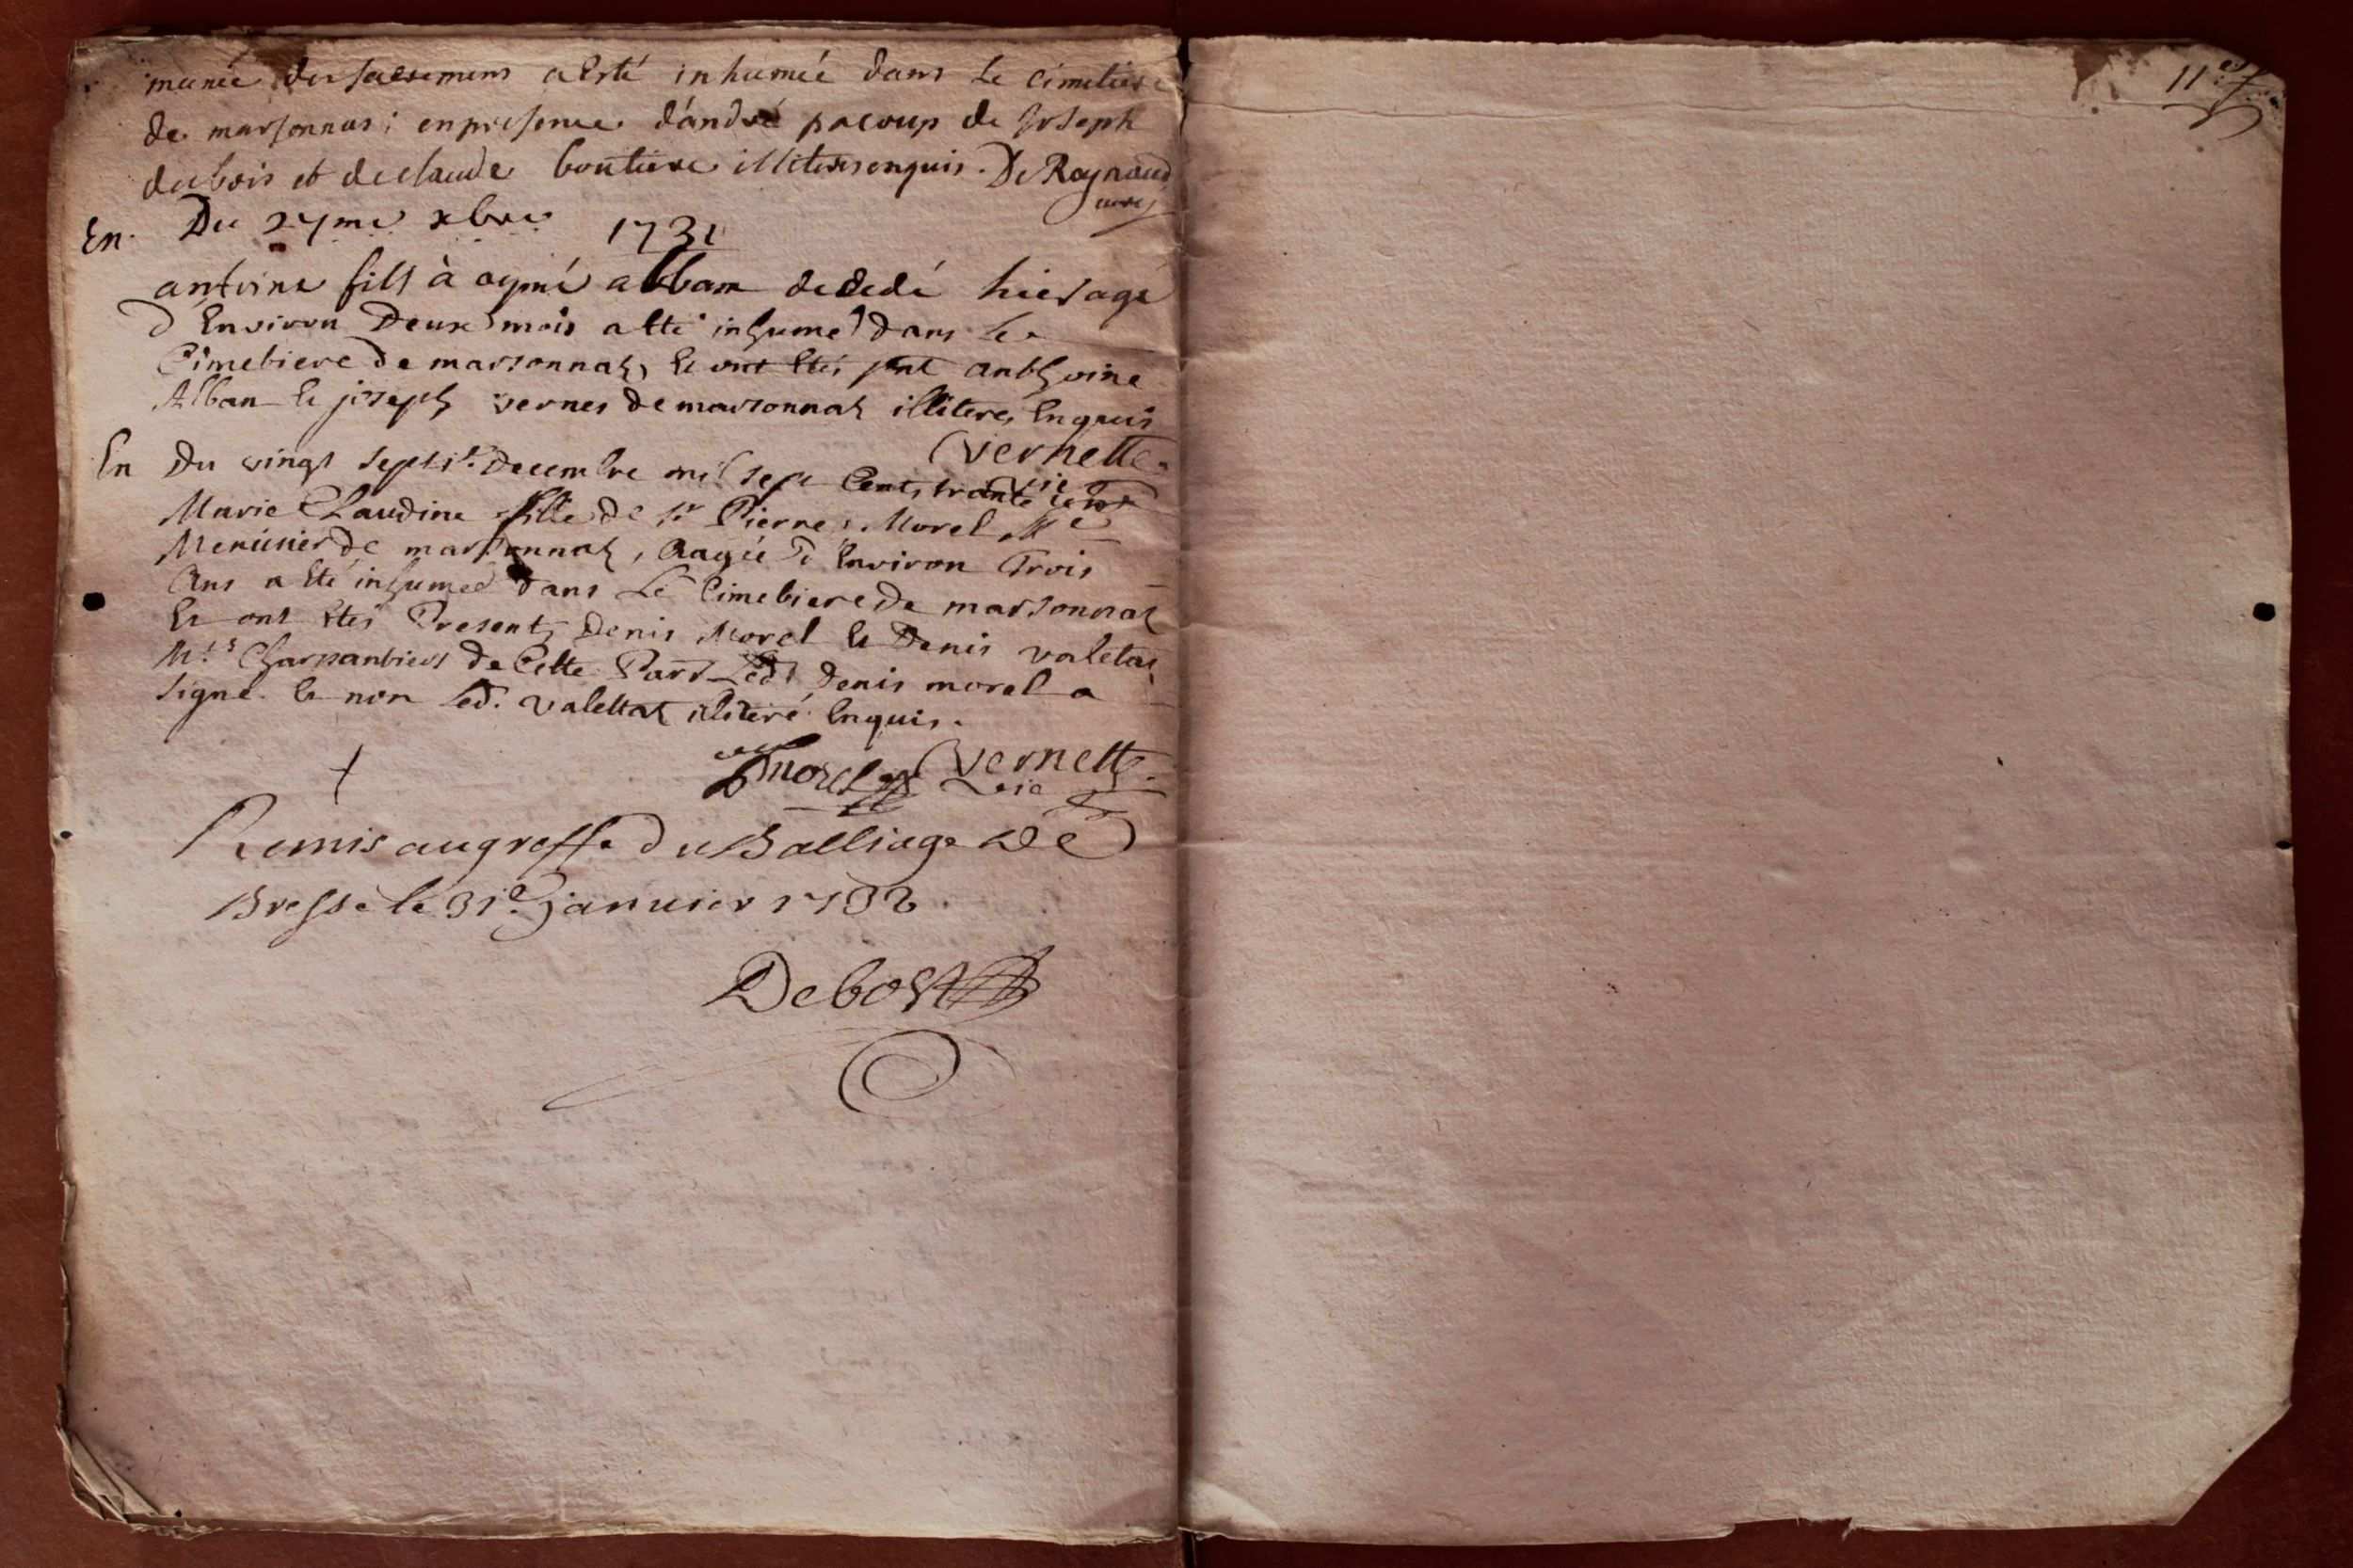 munie des sacremens a esté inhumée dans le cimetiere
de marsonnas ; en presence d'andré pacoup de Joseph
dubois et de claude boutiere illiteres enquis. De Raynaud
curé
En. Du 27me xbre 1731
antoine fils à aymé alban decedé hier agé
d'Environ Deux mois a Eté inhumé dans le
Cimetiere de marsonnaz, Et ont Etés pnt anthoine
Alban Et joseph vernes de marsonnaz illiteres Enquis
Vernette
vie
En Du vingt septie. Decembre mil sept Cents trante
Marie Claudine fille de sr Pierre Morel Me
Menusier de marsonnaz, aagée d'Environ Trois
Ans a Eté inhumee Dans Le Cimetiere de marsonnaz
Et ont Etés Present Denis Morel Et Denis valetat
Mtrs Charpantiers de Cette Parr Led Denis morel a
signé Et non led. valettaz illiteré Enquis.
Dmorel Vernette
vie
Remis au greffe du Balliage de
Bresse le 31e janvier 1732
Debost
11e